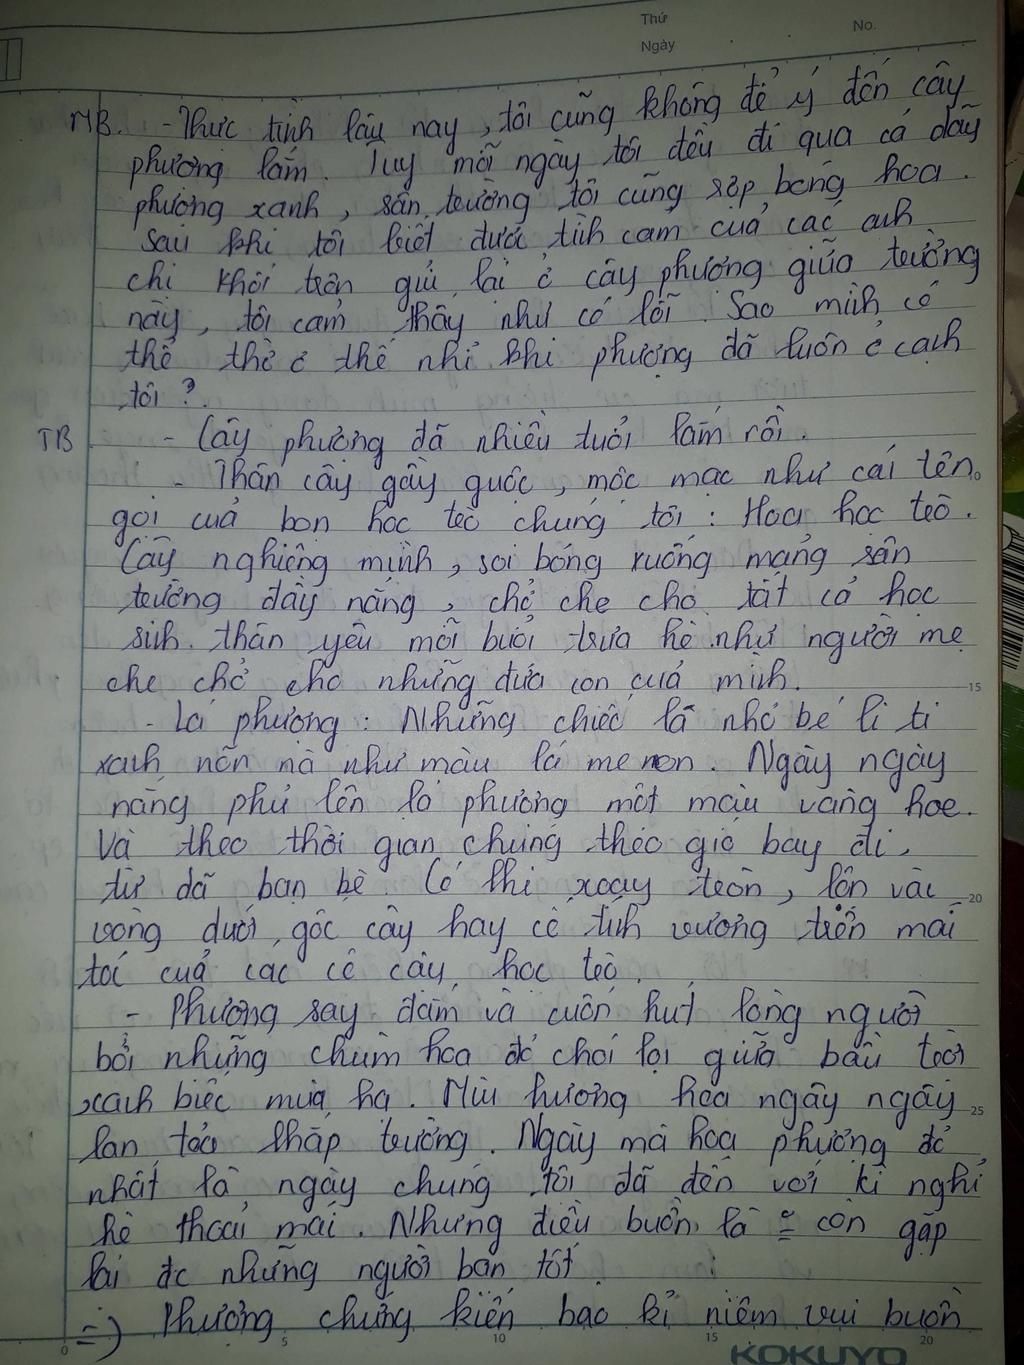 Thứ
Ngày
No.
MB. - Thực tình lâu nay, tôi cũng không để ý đến cây
phượng lắm. Tuy mỗi ngày tôi đều đi qua cả dãy
phượng xanh, sân trường tôi cũng rợp bóng hoa.
Sau khi tôi biết được tình cảm của các anh
chị khối trên gửi lại ở cây phượng giữa trường
này, tôi cảm thấy như có lỗi. Sao mình có
thể thờ ơ thế nhỉ khi phượng đã luôn ở cạnh
tôi?
TB - Cây phượng đã nhiều tuổi lắm rồi.
- Thân cây gầy guộc, mộc mạc như cái tên
gọi của bọn học trò chúng tôi: Hoa học trò.
Cây nghiêng mình, soi bóng xuống mảng sân
trường đầy nắng, chở che cho tất cả học
sinh thân yêu mỗi buổi trưa hè như người mẹ
che chở cho những đứa con của mình.
- Lá phượng: Những chiếc lá nhỏ bé li ti
xanh nõn nà như màu lá me non. Ngày ngày
nắng phủ lên lá phượng một màu vàng hoe.
Và theo thời gian chúng theo gió bay đi,
từ dã bạn bè. Có khi xoay tròn, lộn vài
vòng dưới gốc cây hay cố tình vương trên mái
tóc của các cô cậu học trò.
- Phượng say đắm và cuốn hút lòng người
bởi những chùm hoa đỏ chói lọi giữa bầu trời
xanh biếc mùa hạ. Mùi hương hoa ngây ngây
lan tỏa khắp trường. Ngày mà hoa phượng đỏ
nhất là ngày chúng tôi đã đến với kì nghỉ
hè thoải mái. Nhưng điều buồn là còn gặp
lại đc những người bạn tốt.
=) Phượng chứng kiến bao kỉ niệm vui buồn
10
15
20
25
0
5
10
15
20
KOKUYO